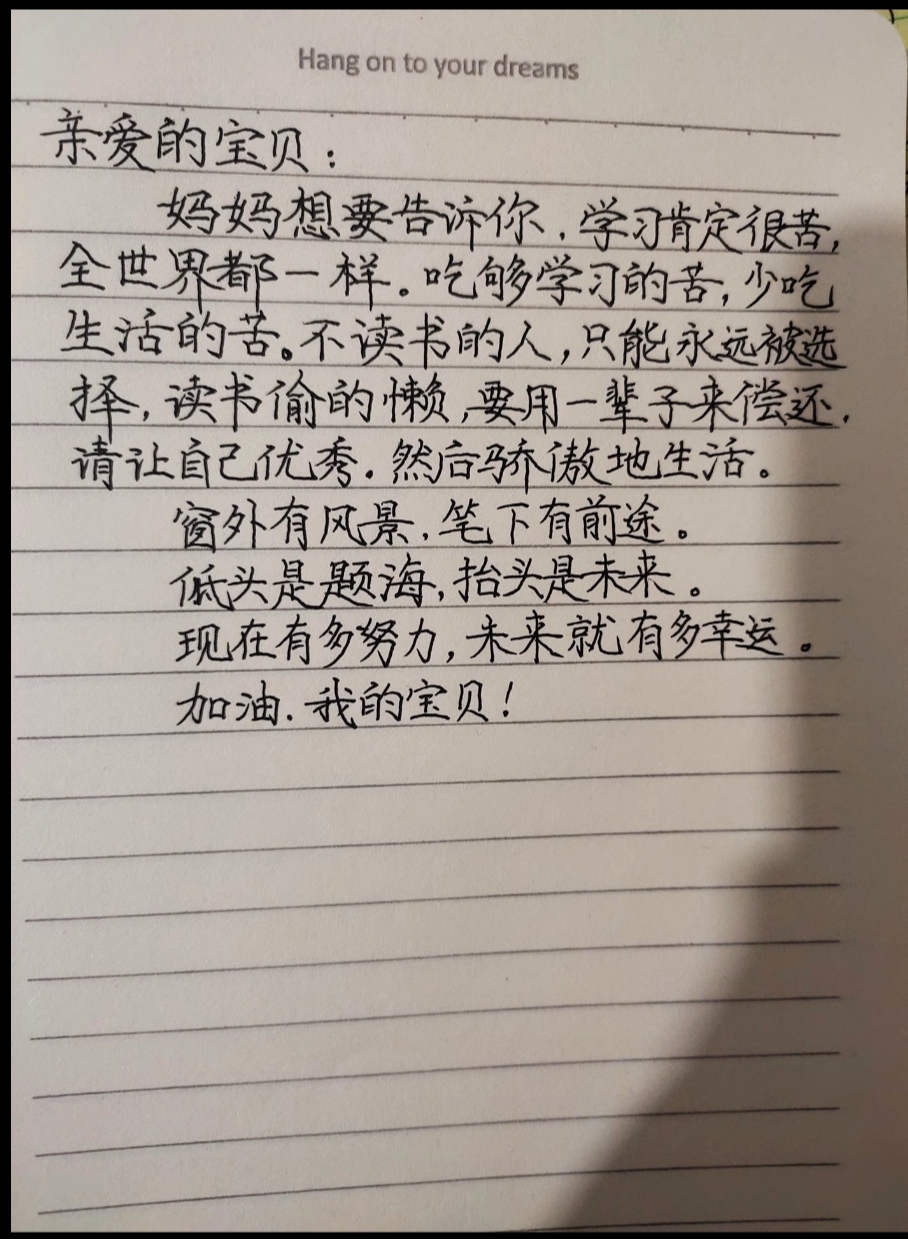 Hang on to your dreams
亲爱的宝贝：
妈妈想要告诉你，学习肯定很苦，
全世界都一样。吃够学习的苦，少吃
生活的苦。不读书的人，只能永远被选
择，读书偷的懒，要用一辈子来偿还，
请让自己优秀，然后骄傲地生活。
窗外有风景，笔下有前途。
低头是题海，抬头是未来。
现在有多努力，未来就有多幸运。
加油，我的宝贝！